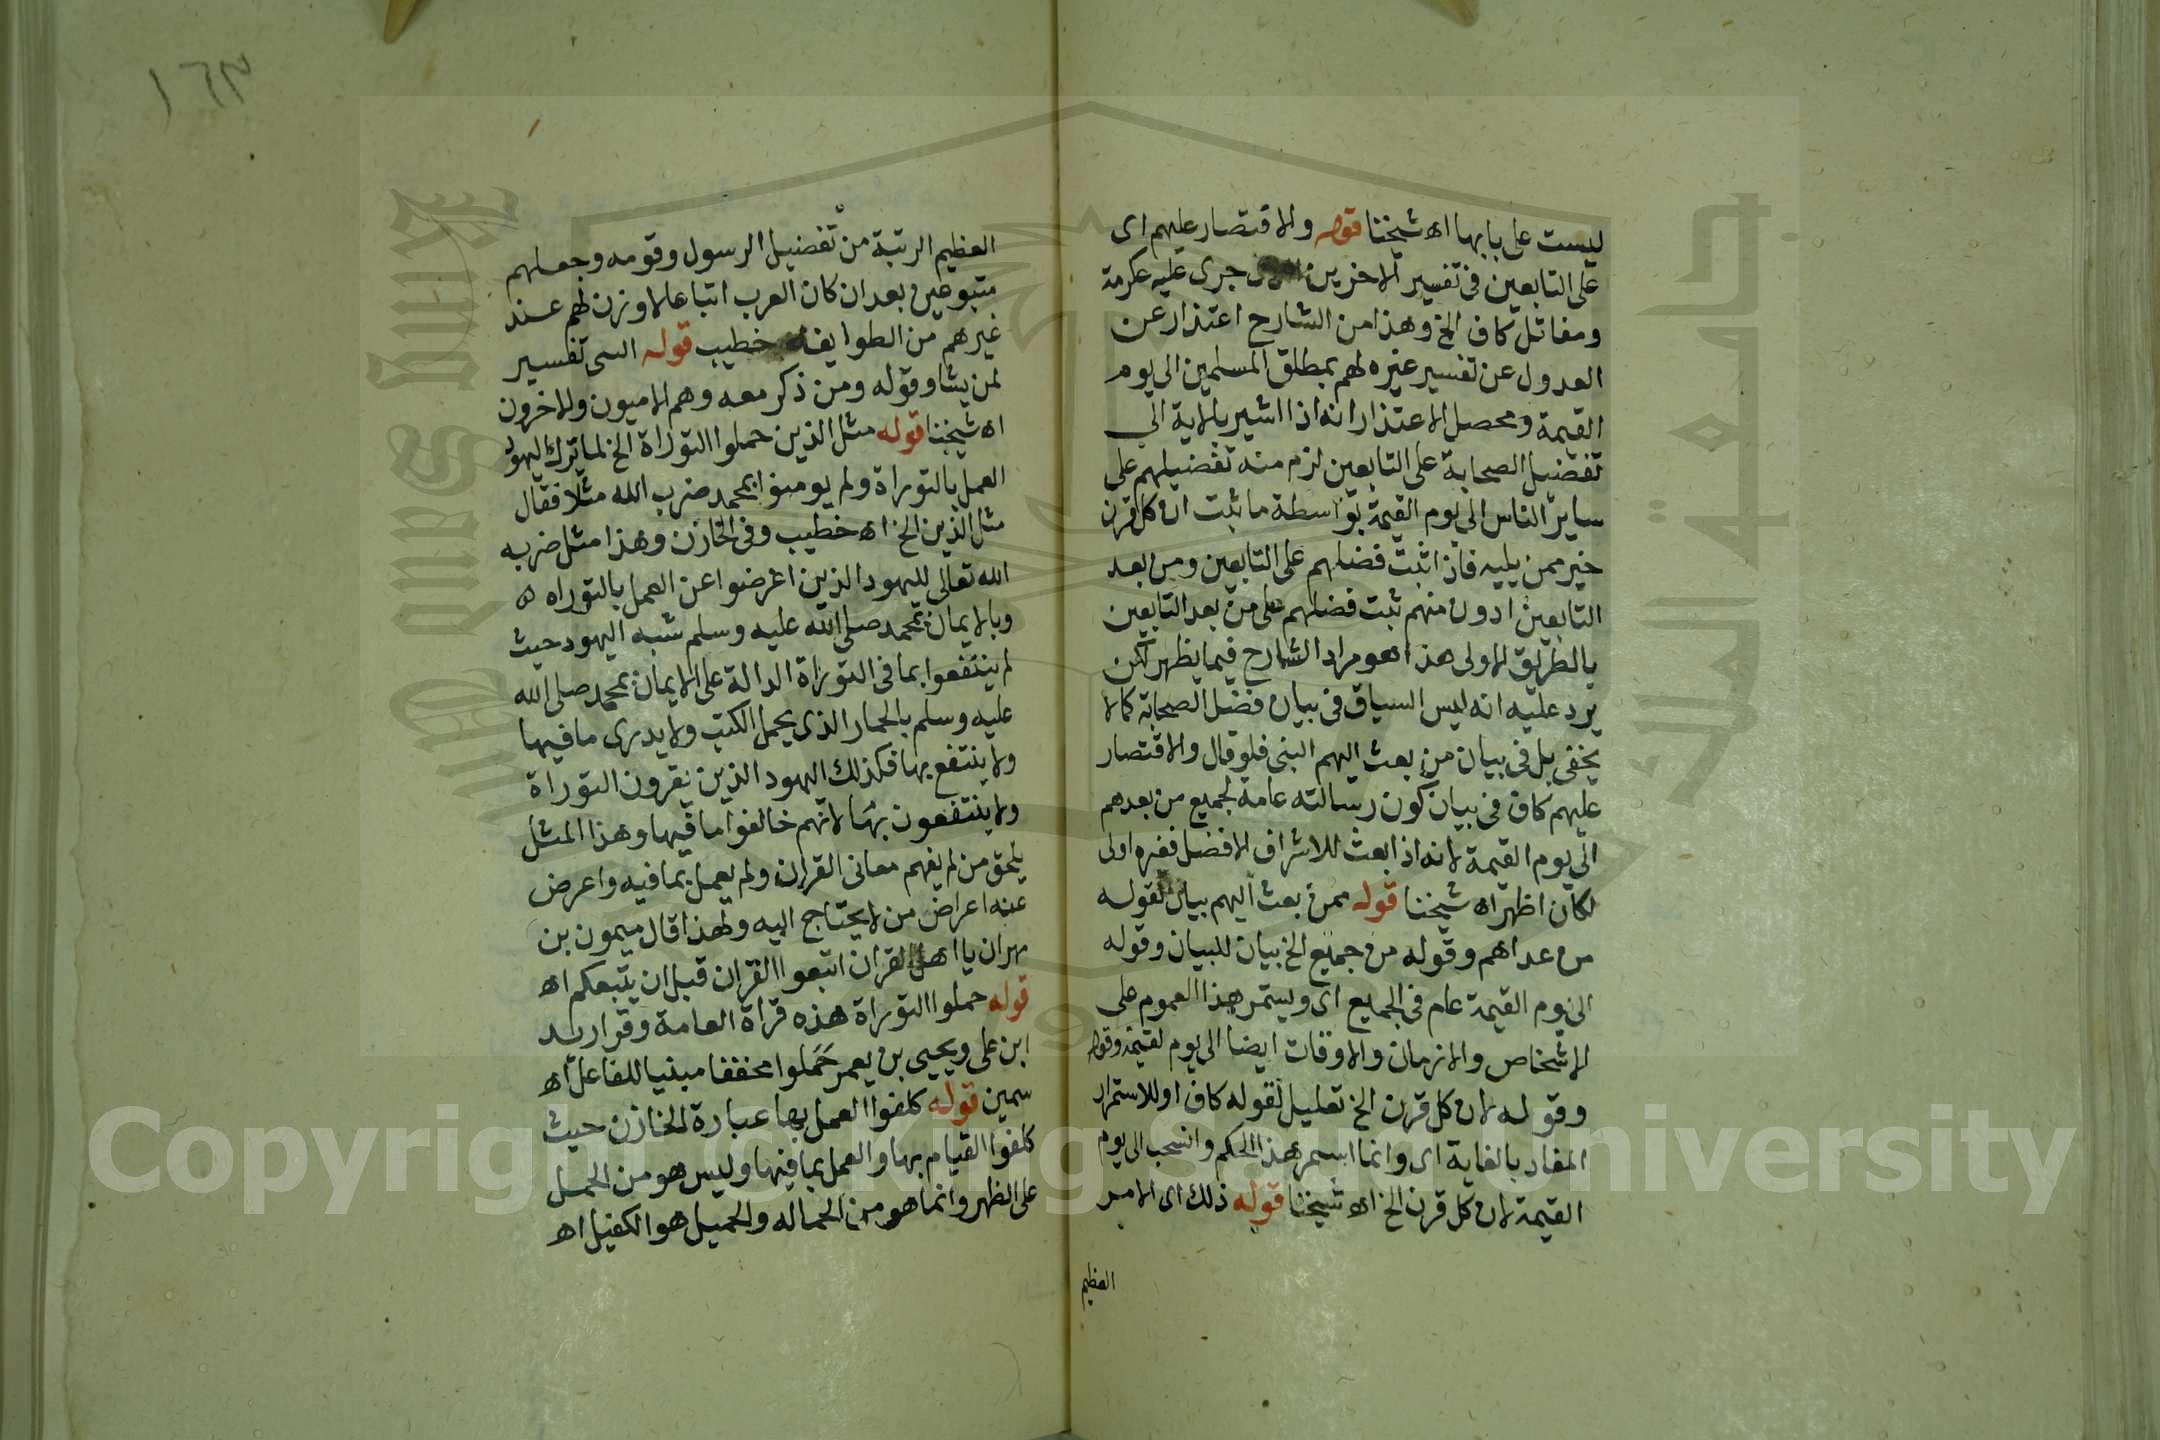 ليست على بابها اه شيخنا قوله والاقتصار عليهم اى
على التابعين فى تفسير الاخرين جرى عليه عكرمة
ومقاتل كاف الخ وهذا من الشارح اعتذار عن
العدول عن تفسير غيره لهم بمطلق المسلمين الى يوم
القيمة ومحصل الاعتذار انه اذا اشير بالاية الى
تفضيل الصحابة على التابعين لزم منه تفضيلهم على
ساير الناس الى يوم القيمة بواسطة ما ثبت ان كل قرن
خير ممن يليه فاذا ثبت فضلهم على التابعين ومن بعد
التابعين ادون منهم ثبت فضلهم على من بعد التابعين
بالطريق الاولى هذا هو مراد الشارح فيما يظهر لكن
يرد عليه انه ليس السياق فى بيان فضل الصحابة كما لا
يخفى بل فى بيان من بعث اليهم النبى فلو قال والاقتصار
عليهم كاف فى بيان كون رسالته عامة لجميع من بعدهم
الى يوم القيمة لانه اذا بعث للاشراف الافضل فغيره اولى
لكان اظهر اه شيخنا قوله ممن بعث اليهم بيان لقوله
من عداهم وقوله من جميع الخ بيان للبيان وقوله
الى يوم القيمة عام فى الجميع اى ويستمر هذا العموم على
الاشخاص والازمان والاوقات ايضا الى يوم لقيمة وقوله
وقوله لان كل قرن الخ تعليل لقوله كاف او للاستمرار
المفاد بالغاية اى وانما استمر هذا الحكم وانسحب الى يوم
القيمة لان كل قرن الخ اه شيخنا قوله ذلك اى الامر
العظيم
١٦٣
العظيم الرتبة من تفضيل الرسول وقومه وجعلهم
متبوعين بعد ان كان العرب اتباعا لا وزن لهم عند
غيرهم من الطوايف خطيب قوله النبى تفسير
لمن يشا وقوله ومن ذكر معه وهم الاميون والاخرون
اه شيخنا قوله مثل الذين حملوا التوراة الخ لما ترك اليهود
العمل بالتوراة ولم يومنوا بمحمد ضرب الله مثلا فقال
مثل الذين الخ اه خطيب وفى الخازن وهذا مثل ضربه
الله تعالى لليهود الذين اعرضوا عن العمل بالتوراه
وبالايمان بمحمد صلى الله عليه وسلم شبه اليهود حيث
لم ينتفعوا بما فى التوراة الدالة على الايمان بمحمد صلى الله
عليه وسلم بالحمار الذى يحمل الكتب ولا يدرى ما فيها
ولا ينتفع بها فكذلك اليهود الذين يقرون التوراة
ولا ينتفعون بها لانهم خالفوا ما فيها وهذا المثل
يلحق من لم يفهم معانى القران ولم يعمل بما فيه واعرض
عنه اعراض من لا يحتاج اليه ولهذا قال ميمون بن
مهران يا اهل القران اتبعوا القران قبل ان يتبعكم اه
قوله حملوا التوراة هذه قراة العامة وقرا زيد
ابن على ويحيى بن يعمر حَمَلوا مخففا مبنيا للفاعل اه
سمين قوله كلفوا العمل بها عبارة الخازن حيث
كلفوا القيام بها والعمل بما فيها وليس هو من الحمل
على الظهر وانما هو من الحماله والحميل هو الكفيل اه
جامعة الملك سعود
King Saud University
1957
Copyright © King Saud University